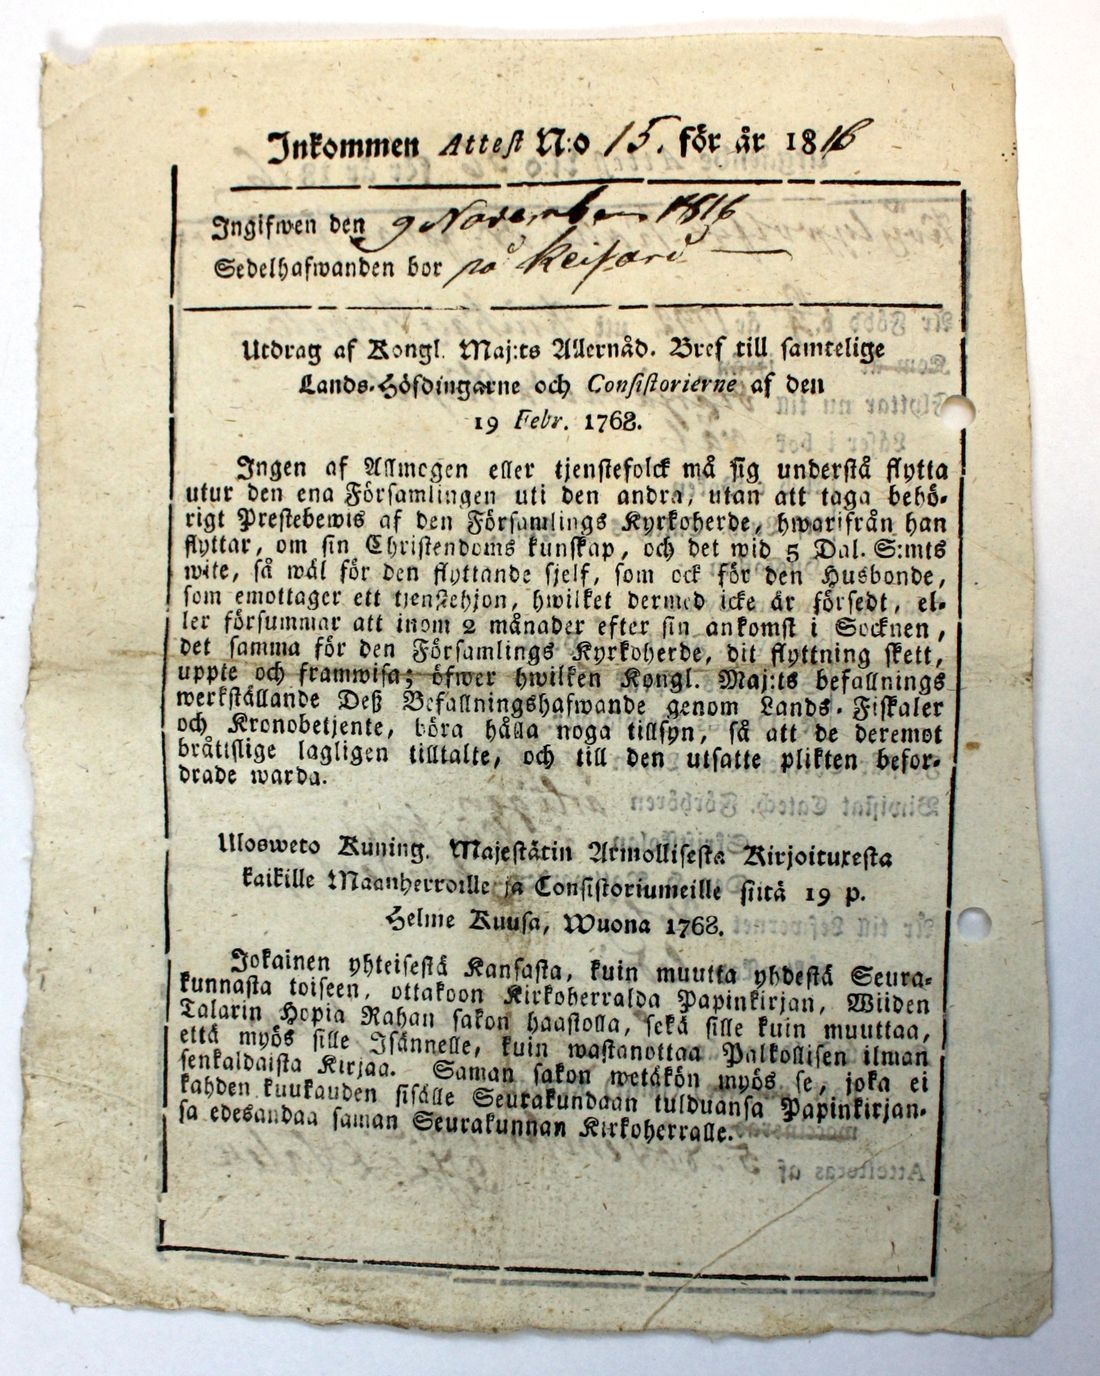 Inkommen Attest N:o 15. för år 1816
Ingifwen den 9 November 1816
Sedelhafwanden bor på
Utdrag af Kongl. Maj:ts Allernåd. Bref till samtelige
Lands-Höfdingarne och Consistorierne af den
19 Febr. 1768.
Ingen af Allmogen eller tjenstefolck må sig understå flytta
utur den ena Församlingen uti den andra, utan att taga behö-
rigt Prestebewis af den Församlings Kyrkoherde, hwarifrån han
flyttar, om sin Christendoms kunskap, och det wid 5 Dal. S:mts
wite, så wäl för den flyttande sjelf, som ock för den Husbonde,
som emottager ett tjenstehjon, hwilket dermed icke är försedt, el-
ler försummar att inom 2 månader efter sin ankomst i Socknen,
det samma för den Församlings Kyrkoherde, dit flyttning skett,
uppte och framwisa; öfwer hwilken Kongl. Maj:ts befallnings
werkställande Deß Befallningshafwande genom Lands-Fiskaler
och Kronobetjente, böra hålla noga tillsyn, så att de deremot
bråtislige lagligen tilltalte, och till den utsatte plikten befor-
drade warda.
Ulosweto Kuning. Majestätin Armollisesta Kirjoituxesta
kaikille Maanherroille ja Consistoriumeille siitä 19 p.
Helme Kuusa, Wuona 1768.
Jokainen yhteisestä Kansasta, kuin muutta yhdestä Seura-
kunnasta toiseen, ottakoon Kirkoherralda Papinkirjan, Wiiden
Talarin Hopia Rahan sakon haastolla, sekä sille kuin muuttaa,
että myös sille Isännelle, kuin wastanottaa Palkollisen ilman
senkaldaista Kirjaa. Saman sakon wetäkön myös se, joka ei
kahden kuukauden sisälle Seurakundaan tulduansa Papinkirjan-
sa edesandaa saman Seurakunnan Kirkoherralle.